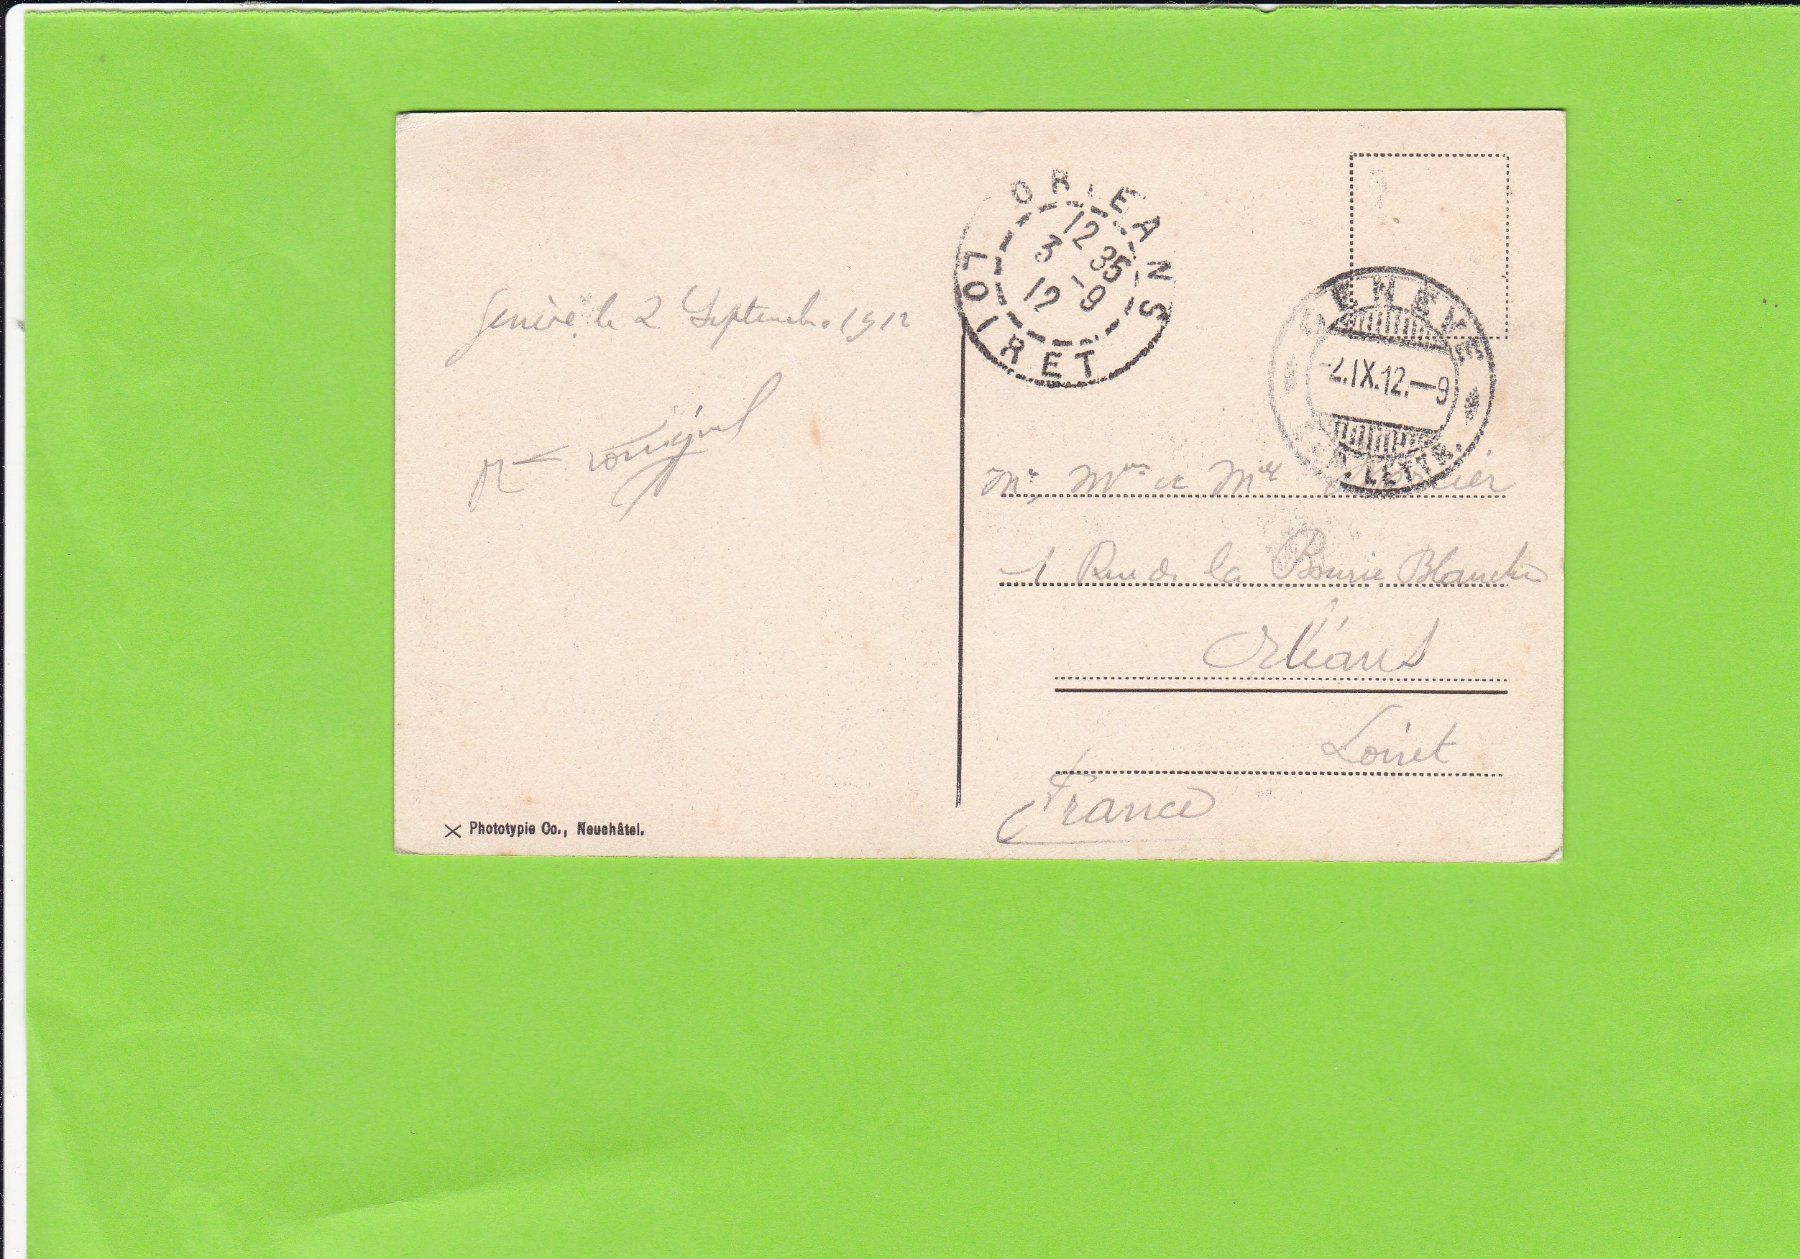 Genève le 2 Septembre 1912
Phototypie Co., Neuchâtel.
ORLEANS
12 35
3 -9
12
LOIRET
GENÈVE
-2.IX.12.-9
LETTR.
Mr, Mme et Mlle
1 Rue de la Bourie Blanche
Orléans
Loiret
France